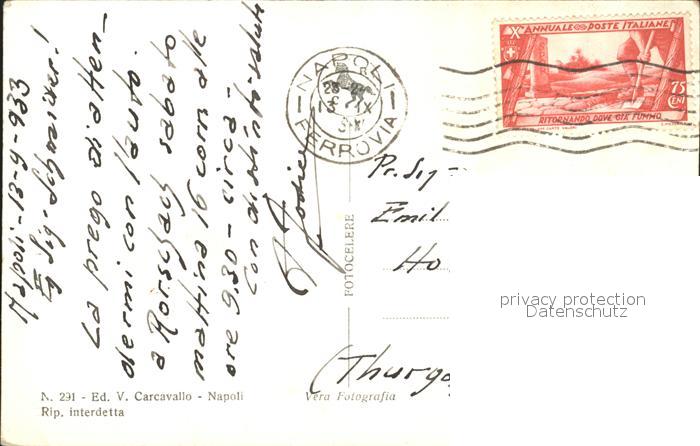 Napoli - 13-9-933
Eg. Sig. Schmizer!
La prego di atten-
dermi con l'auto
a Rorschach sabato
mattina 16 corr. alle
ore 9.30 - circa -
Con distinto salute
N. 291 - Ed. V. Carcavallo - Napoli
Rip. interdetta
FOTOCELERE
Vera Fotografia
NAPOLI
FERROVIA
X ANNUALE POSTE ITALIANE
75
CENT
RITORNANDO DOVE GIÀ FUMMO
Pr. Sig.
Emil
Ho
(Thurgo
privacy protection
Datenschutz